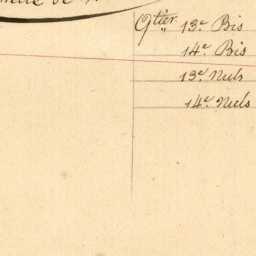 Qtier 13e Bis
14e Bis
13e Nuls
14e Nuls